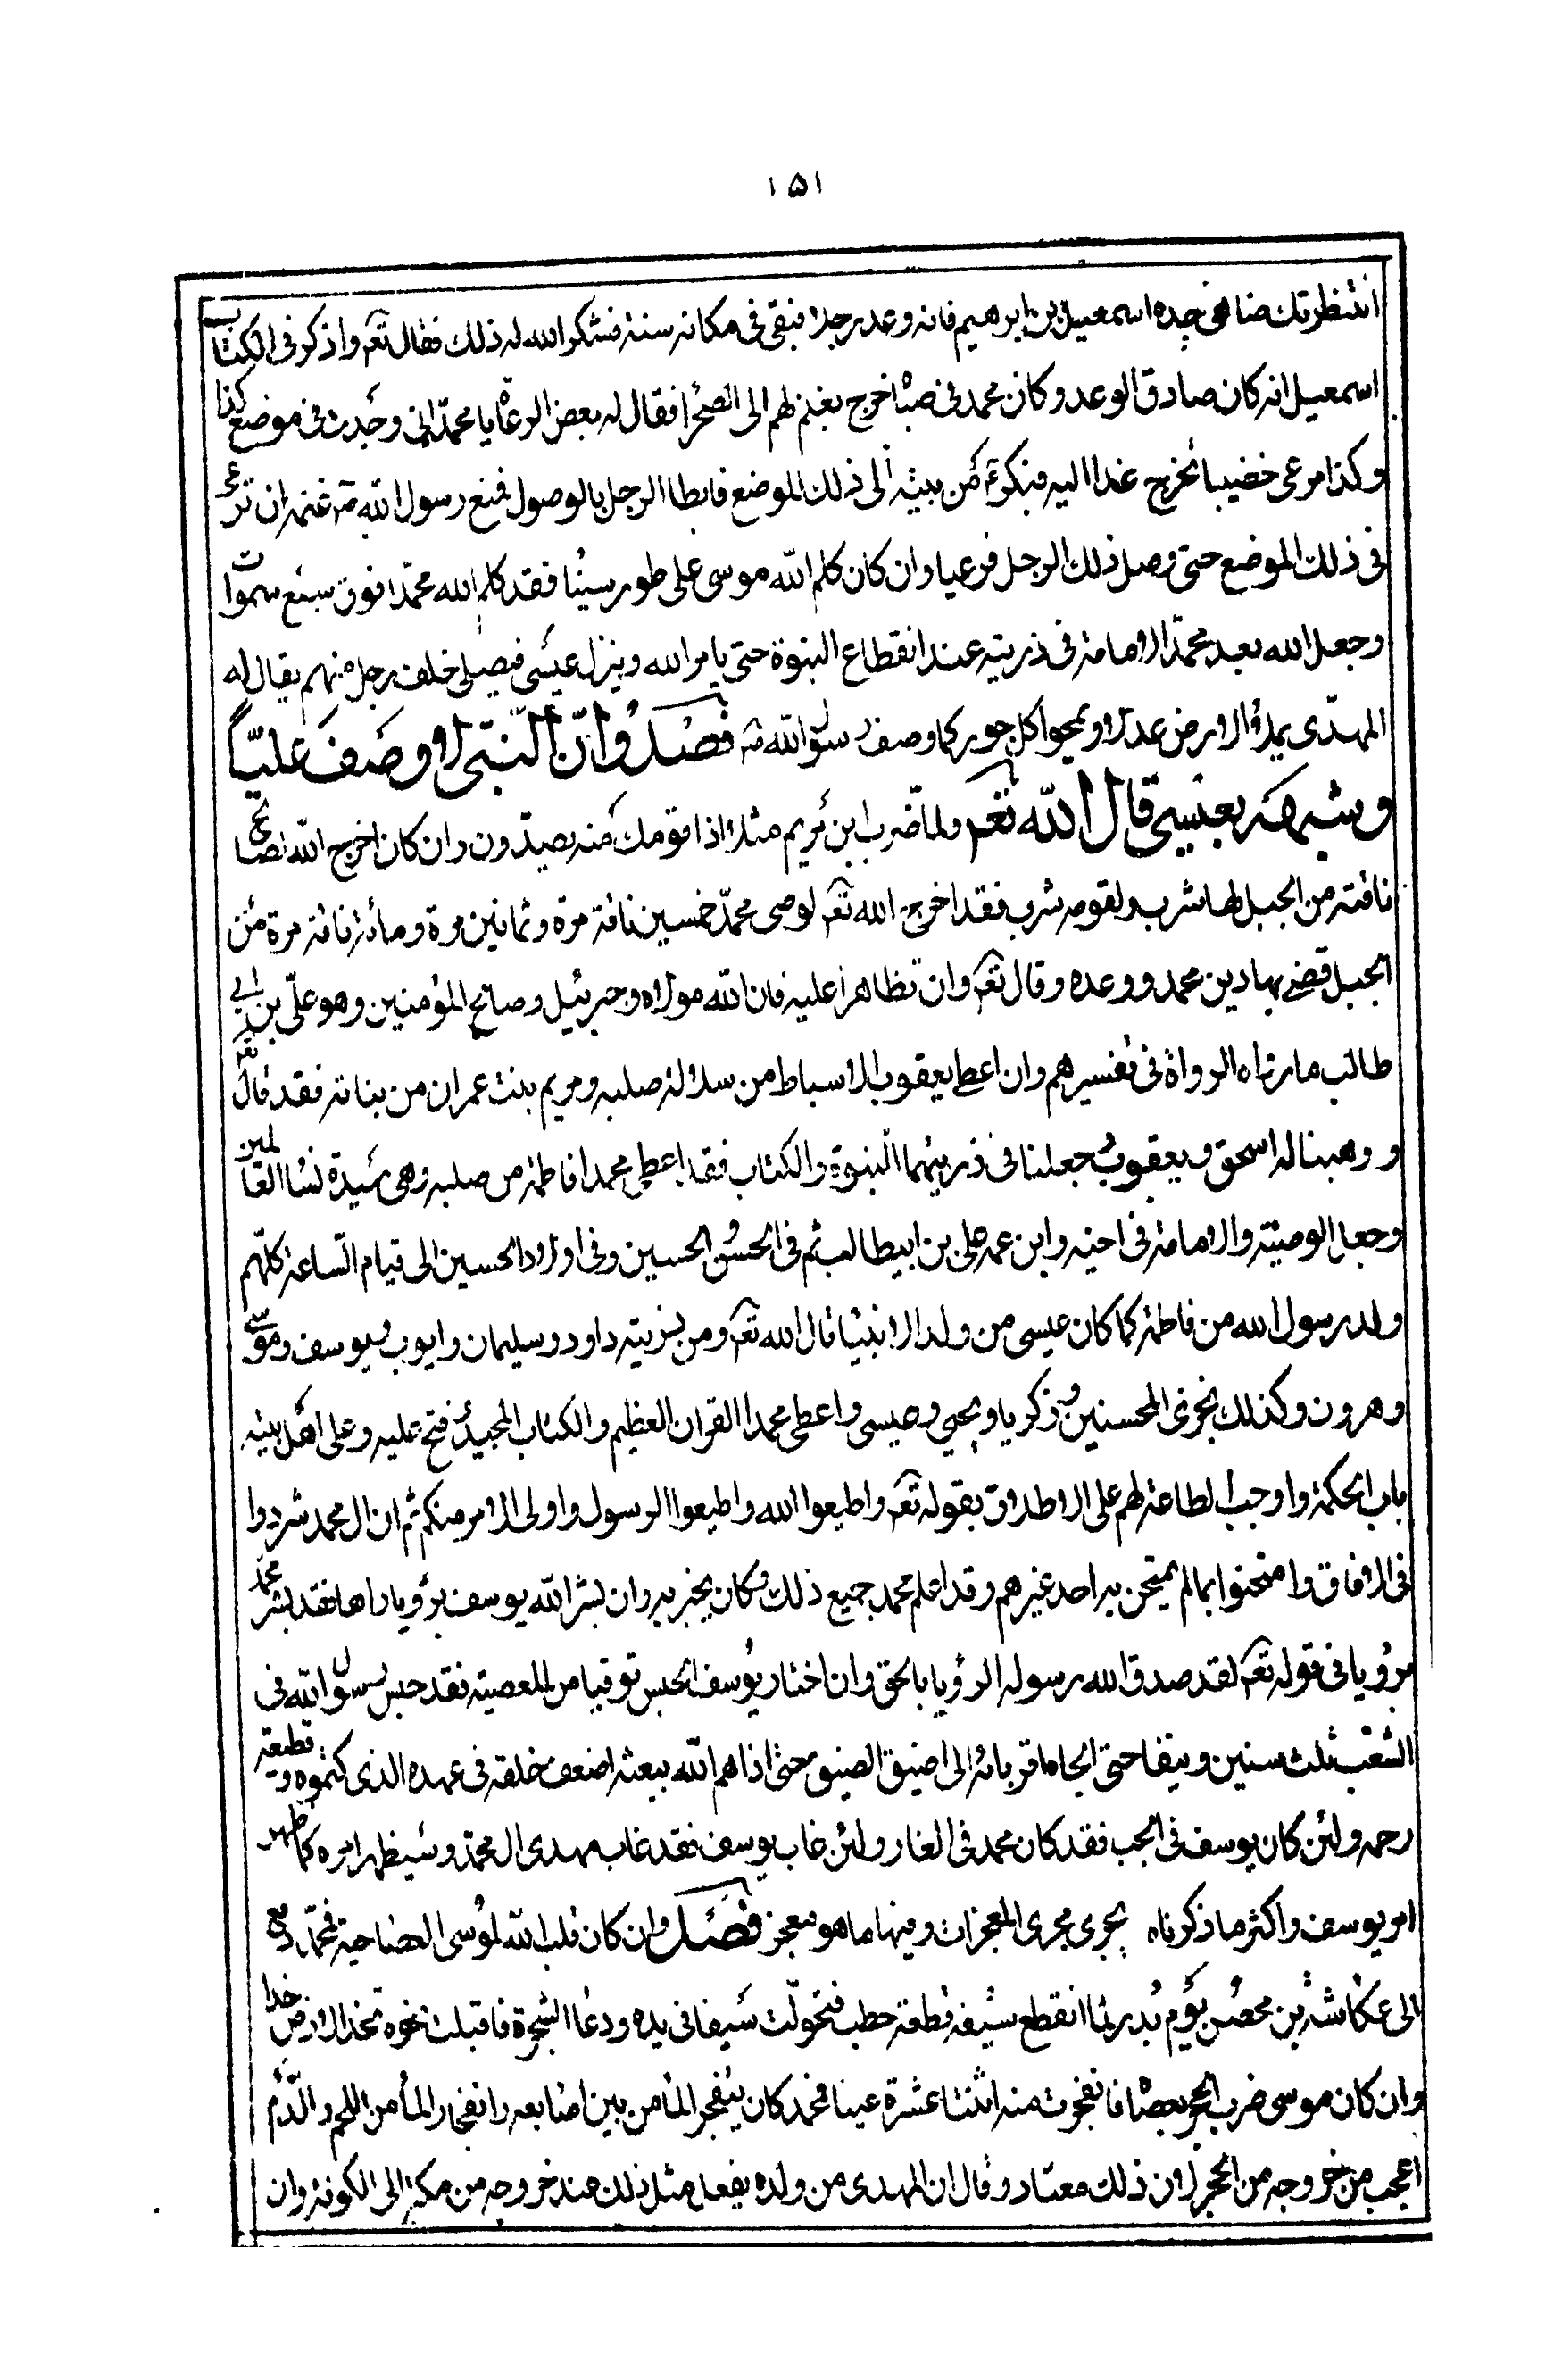 ١٥١
انتظرتك ضاهى جده اسمعيل بن ابرهيم فانه وعد رجلا فبقى فى مكانه سنة فشكر الله له ذلك فقال تعم واذكر فى الكتاب
اسمعيل انه كان صادق الوعد وكان محمد فى صباه خرج بغنم لهم الى الصحرا فقال له بعض الرعاة يا محمد انى وجدت فى موضع كذا
وكذا مرعى خضيبا نخرج غدا اليه فبكر من بيته الى ذلك الموضع فابطا الرجل بالوصول فمنع رسول الله ص غنمه ان ترعى
فى ذلك الموضع حتى وصل ذلك الرجل فرعيا وان كان كلم الله موسى على طور سينا فقد كلم الله محمدا فوق سبع سموات
وجعل الله بعد محمد الامامة فى ذريته عند انقطاع النبوة حتى يامر الله وينزل عيسى فيصلى خلف رجل منهم يقال له
المهدى يملؤ الارض عدلا ويمحوا كل جور كما وصف رسول الله ص فصل وان النبى ص وصف عليا
وشبهه بعيسى قال الله تعم ولما ضرب ابن مريم مثلا اذا قومك منه يصدون وان كان اخرج الله لصالح
ناقته من الجبل لها شرب ولقومه شرب فقد اخرج الله تعم لوصى محمد خمسين ناقة مرة وثمانين مرة ومائة ناقة مرة من
الجبل قضى بها دين محمد ووعده وقال تعم وان تظاهرا عليه فان الله مولاه وجبرئيل وصالح المؤمنين وهو على بن ابى
طالب ما رواه الرواة فى تفسيرهم وان اعطى يعقوب الاسباط من سلالة صلبه ومريم بنت عمران من بناته فقد قال تعم
ووهبنا له اسحق ويعقوب وجعلنا فى ذريتهما النبوة والكتاب فقد اعطى محمدا فاطمة من صلبه وهى سيدة نسا العالمين
وجعل الوصية والامامة فى اخيه وابن عمه على بن ابيطالب ثم فى الحسن والحسين وفى اولاد الحسين الى قيام الساعة كلهم
ولد رسول الله من فاطمة كما كان عيسى من ولد الانبيا قال الله تعم ومن ذريته داود وسليمان وايوب ويوسف وموسى
وهرون وكذلك نجزى المحسنين وذكريا ويحيى وعيسى واعطى محمدا القران العظيم والكتاب المجيد فتح عليه وعلى اهل بيته
باب الحكمة واوجب الطاعة لهم على الاطلاق بقوله تعم واطيعوا الله واطيعوا الرسول واولى الامر منكم ثم ان ال محمد شردوا
فى الافاق وامتحنوا بما لم يمتحن به احد غيرهم وقد اعلم محمد جميع ذلك وكان يخبر به وان بشر الله يوسف برؤيا راها فقد بشر محمد
برؤيا فى قوله تعم لقد صدق الله رسوله الرؤيا بالحق وان اختار يوسف الحبس توقيا من المعصية فقد حبس رسول الله فى
الشعب ثلث سنين ونيفا حتى الجاه اقرباؤه الى اضيق الضيق حتى اذا هم الله ببعثه اضعف خلقه فى عهده الذى كتموه وقطيعة
رحمه ولئن كان يوسف فى الجب فقد كان محمد فى الغار ولئن غاب يوسف فقد غاب مهدى ال محمد وسيظهر امره كما ظهر
امر يوسف واكثر ما ذكرناه يجرى مجرى المعجزات ومنها ما هو معجز فصل وان كان قلب الله لموسى العصا حية فمحمد دفع
الى عكاشة بن محصن يوم بدر لما انقطع سيفه قطعة حطب فتحولت سيفا فى يده ودعا الشجرة فاقبلت نحوه تخد الارض خدا
وان كان موسى ضرب الحجر بعصاه فانفجرت منه اثنتا عشرة عينا فمحمد كان ينفجر الما من بين اصابعه وانفجار الما من اللحم والدم
اعجب من خروجه من الحجر لان ذلك معتاد وقال ان المهدى من ولده يفعل مثل ذلك عند خروجه من مكة الى الكوفة وان